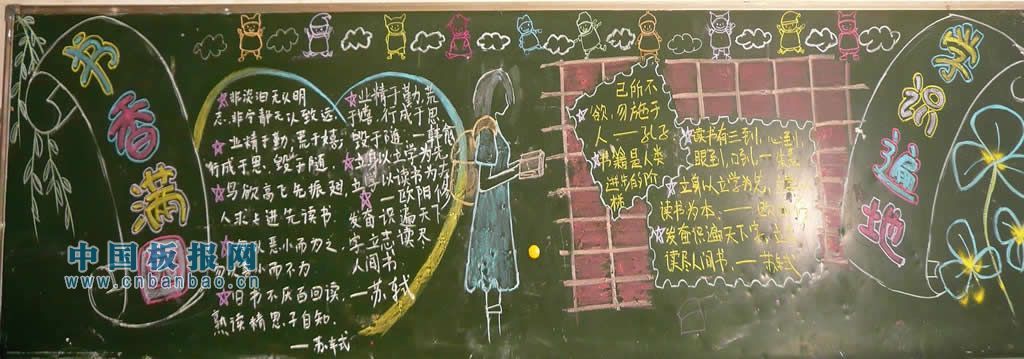 书香满园
非淡泊无以明
志,非宁静无以致远
业精于勤,荒于嬉
行成于思,毁于随
鸟欲高飞先振翅
人求上进先读书
恶小而为之
小而不为
旧书不厌百回读
熟读精思子自知
——苏轼
业精于勤,荒
于嬉,行成于思
毁于随,—韩愈
立身以立学为先
以读书为本
—欧阳修
发奋识遍天下
字,立志读尽
人间书
—苏轼
己所不
欲,勿施于
人——孔子
书籍是人类
进步的阶
梯
读书有三到,心到,
眼到,口到,一朱熹
立身以立学为先,
读书为本,——
发奋识遍天下字,立
读尽人间书,——苏轼
学识遍地
中国板报网
www.cnbanbao.cn